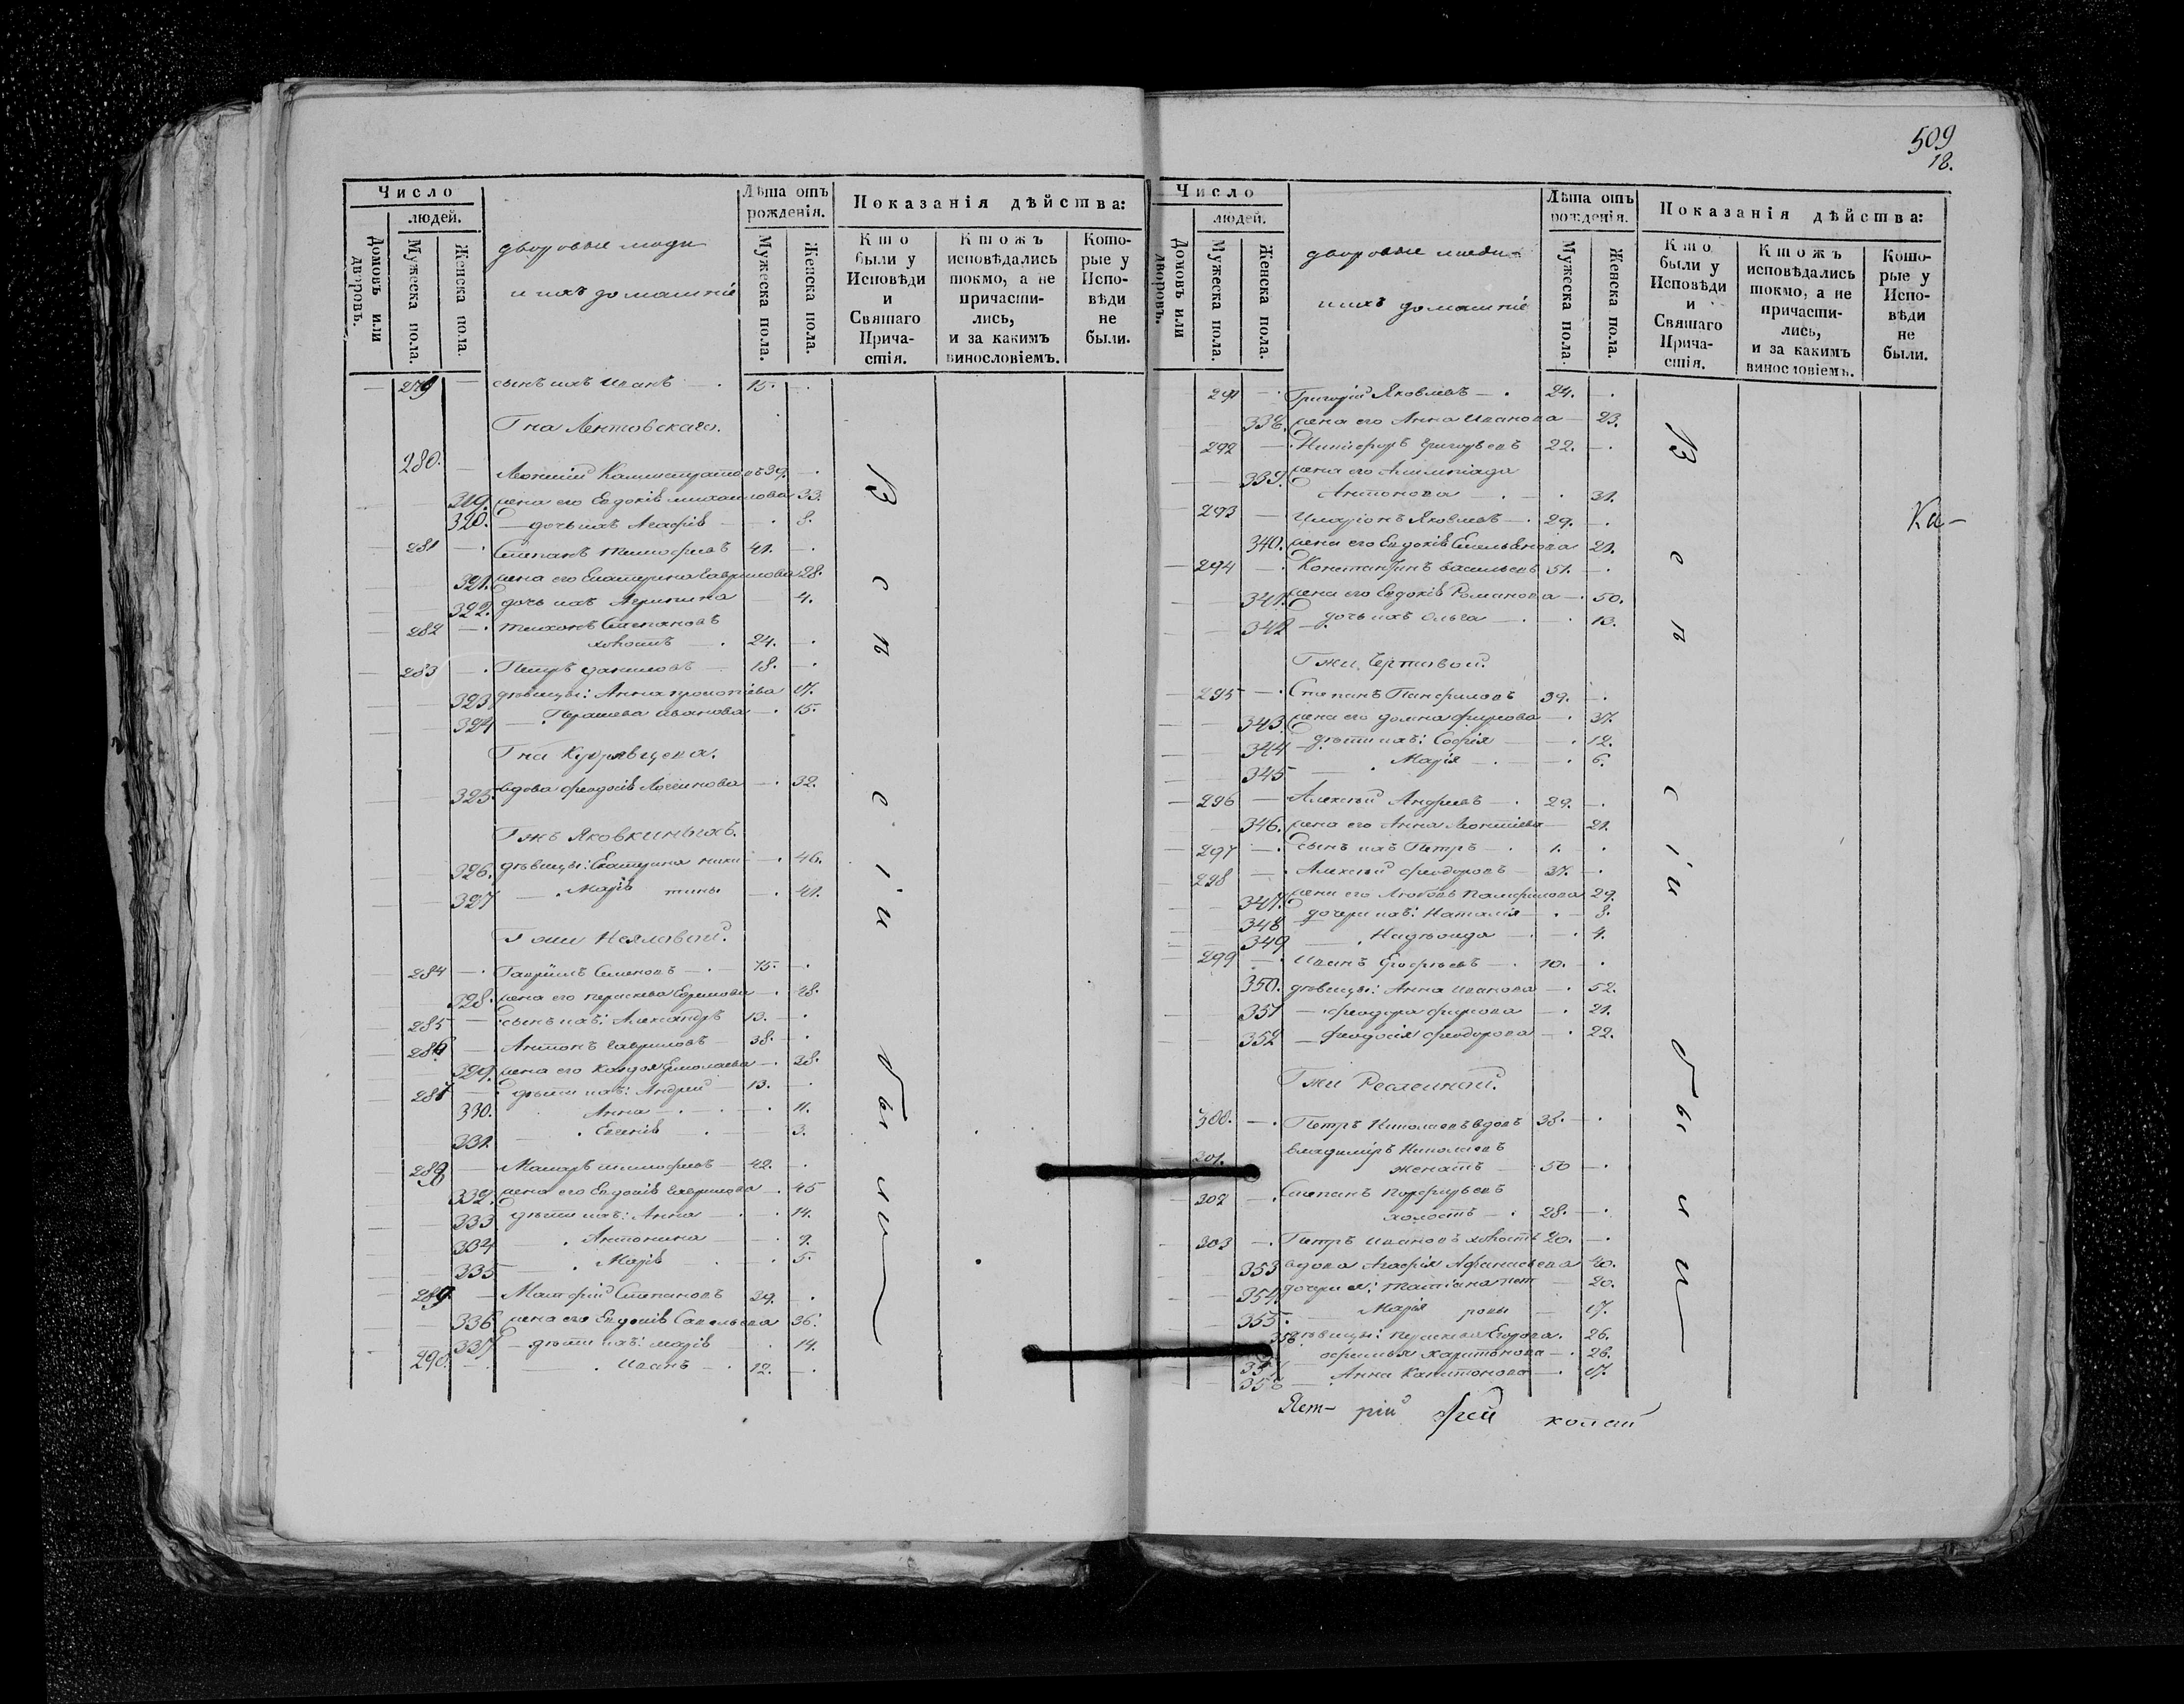 509
18.
Число
людей.
Домовъ или дворовъ.
Мужеска пола.
Женска пола.
дворовые люди
и ихъ домашніе
Лѣта отъ рожденія.
Мужеска пола.
Женска пола.
Показанія дѣйства:
Кто были у Исповѣди и Святаго Причастія.
Ктожъ исповѣдались токмо, а не причастились, и за какимъ винословіемъ.
Которые у Исповѣди не были.
279 — сынъ ихъ Иванъ 15.
Гна Лентовскаго.
280. Леонтій Калистратовъ 39.
319. жена его Евдокія Михаилова 33.
320. — дочь ихъ Агафія 8.
281 — Степанъ Тимофеевъ 41.
321. жена его Екатерина Гаврилова 28.
322. дочь ихъ Агрипина 4.
282 — Тихонъ Степановъ
холостъ 24.
283 — Петръ Даниловъ 18.
323 дѣвицы: Анна Прокопіева 17.
324 — Параскева Иванова 15.
Гна Кудрявцева.
325 вдова Феодосія Логинова 32.
Гжъ Яковкиныхъ.
326. дѣвицы: Екатерина Ники- 46.
327 — Марія тины 41.
Гжи Нееловой.
284 — Гавріилъ Семеновъ 75.
328. жена его Параскева Ефимова 48.
285 — сынъ ихъ: Александръ 13.
286 — Антонъ Гавриловъ 38.
329. жена его Ермолаева 38.
287 — дѣти ихъ: Андрей 13.
330. Анна 11.
331. Евгенія 3.
288 — Макаръ Тимофеевъ 42.
332. жена его Евдокія Гаврилова 45
333 дѣти ихъ: Анна 14.
334 Антонина 9.
335 Марія 5.
289 — Матфей Степановъ 39.
336. жена его Евдокія Савельева 36.
337. — дѣти ихъ: Марія 14.
290. — Иванъ 12.
В с п с і и б ы л и
Число
людей.
Домовъ или дворовъ.
Мужеска пола.
Женска пола.
дворовые люди
и ихъ домашніе
Лѣта отъ рожденія.
Мужеска пола.
Женска пола.
Показанія дѣйства:
Кто были у Исповѣди и Святаго Причастія.
Ктожъ исповѣдались токмо, а не причастились, и за какимъ винословіемъ.
Которые у Исповѣди не были.
291 — Григорій Яковлевъ 24.
338. жена его Анна Иванова 23.
292 — Никифоръ Григорьевъ 22.
339. жена его Алимпіада
Антонова 31.
293 — Иларіонъ Яковлевъ 29.
340. жена его Евдокія Емельянова 21.
294 — Константинъ Васильевъ 51.
341. жена его Евдокія Романова 50.
342 — дочь ихъ Ольга 13.
Гжи Чертовой.
295 — Степанъ Панфиловъ 39.
343. жена его Домна Фирсова 37.
344 — дѣти ихъ: Софія 12.
345 — Марія 6.
296 — Алексѣй Андреевъ 29.
346. жена его Анна Леонтіева 21.
297 — сынъ ихъ Петръ 1.
298 — Алексѣй Феодоровъ 37.
347. жена его Любовь Памфилова 29.
348 дочери ихъ: Наталія 8.
349 — Надѣжда 4.
299 — Иванъ Ерофѣевъ 10.
350. дѣвицы: Анна Иванова 52.
351 — Феодора Фирсова 21.
352 — Феодосія Феодорова 22.
Гжи
300. — Петръ Николаевъ вдовъ 38.
301. Владиміръ Николаевъ
женатъ 50
302 — Степанъ Порфирьевъ
холостъ 28.
303 — Петръ Ивановъ холостъ 20.
353 вдова Агафія Афанасьева 40.
354. дочери ея: Татіана Пет- 20.
355. Марія ровы 17.
356 дѣвицы: Параскева Егорова 26.
357 Харитонова 26.
358 — Анна Капитонова 17.
В с п с і и б ы л и
Ка-
рій ерей